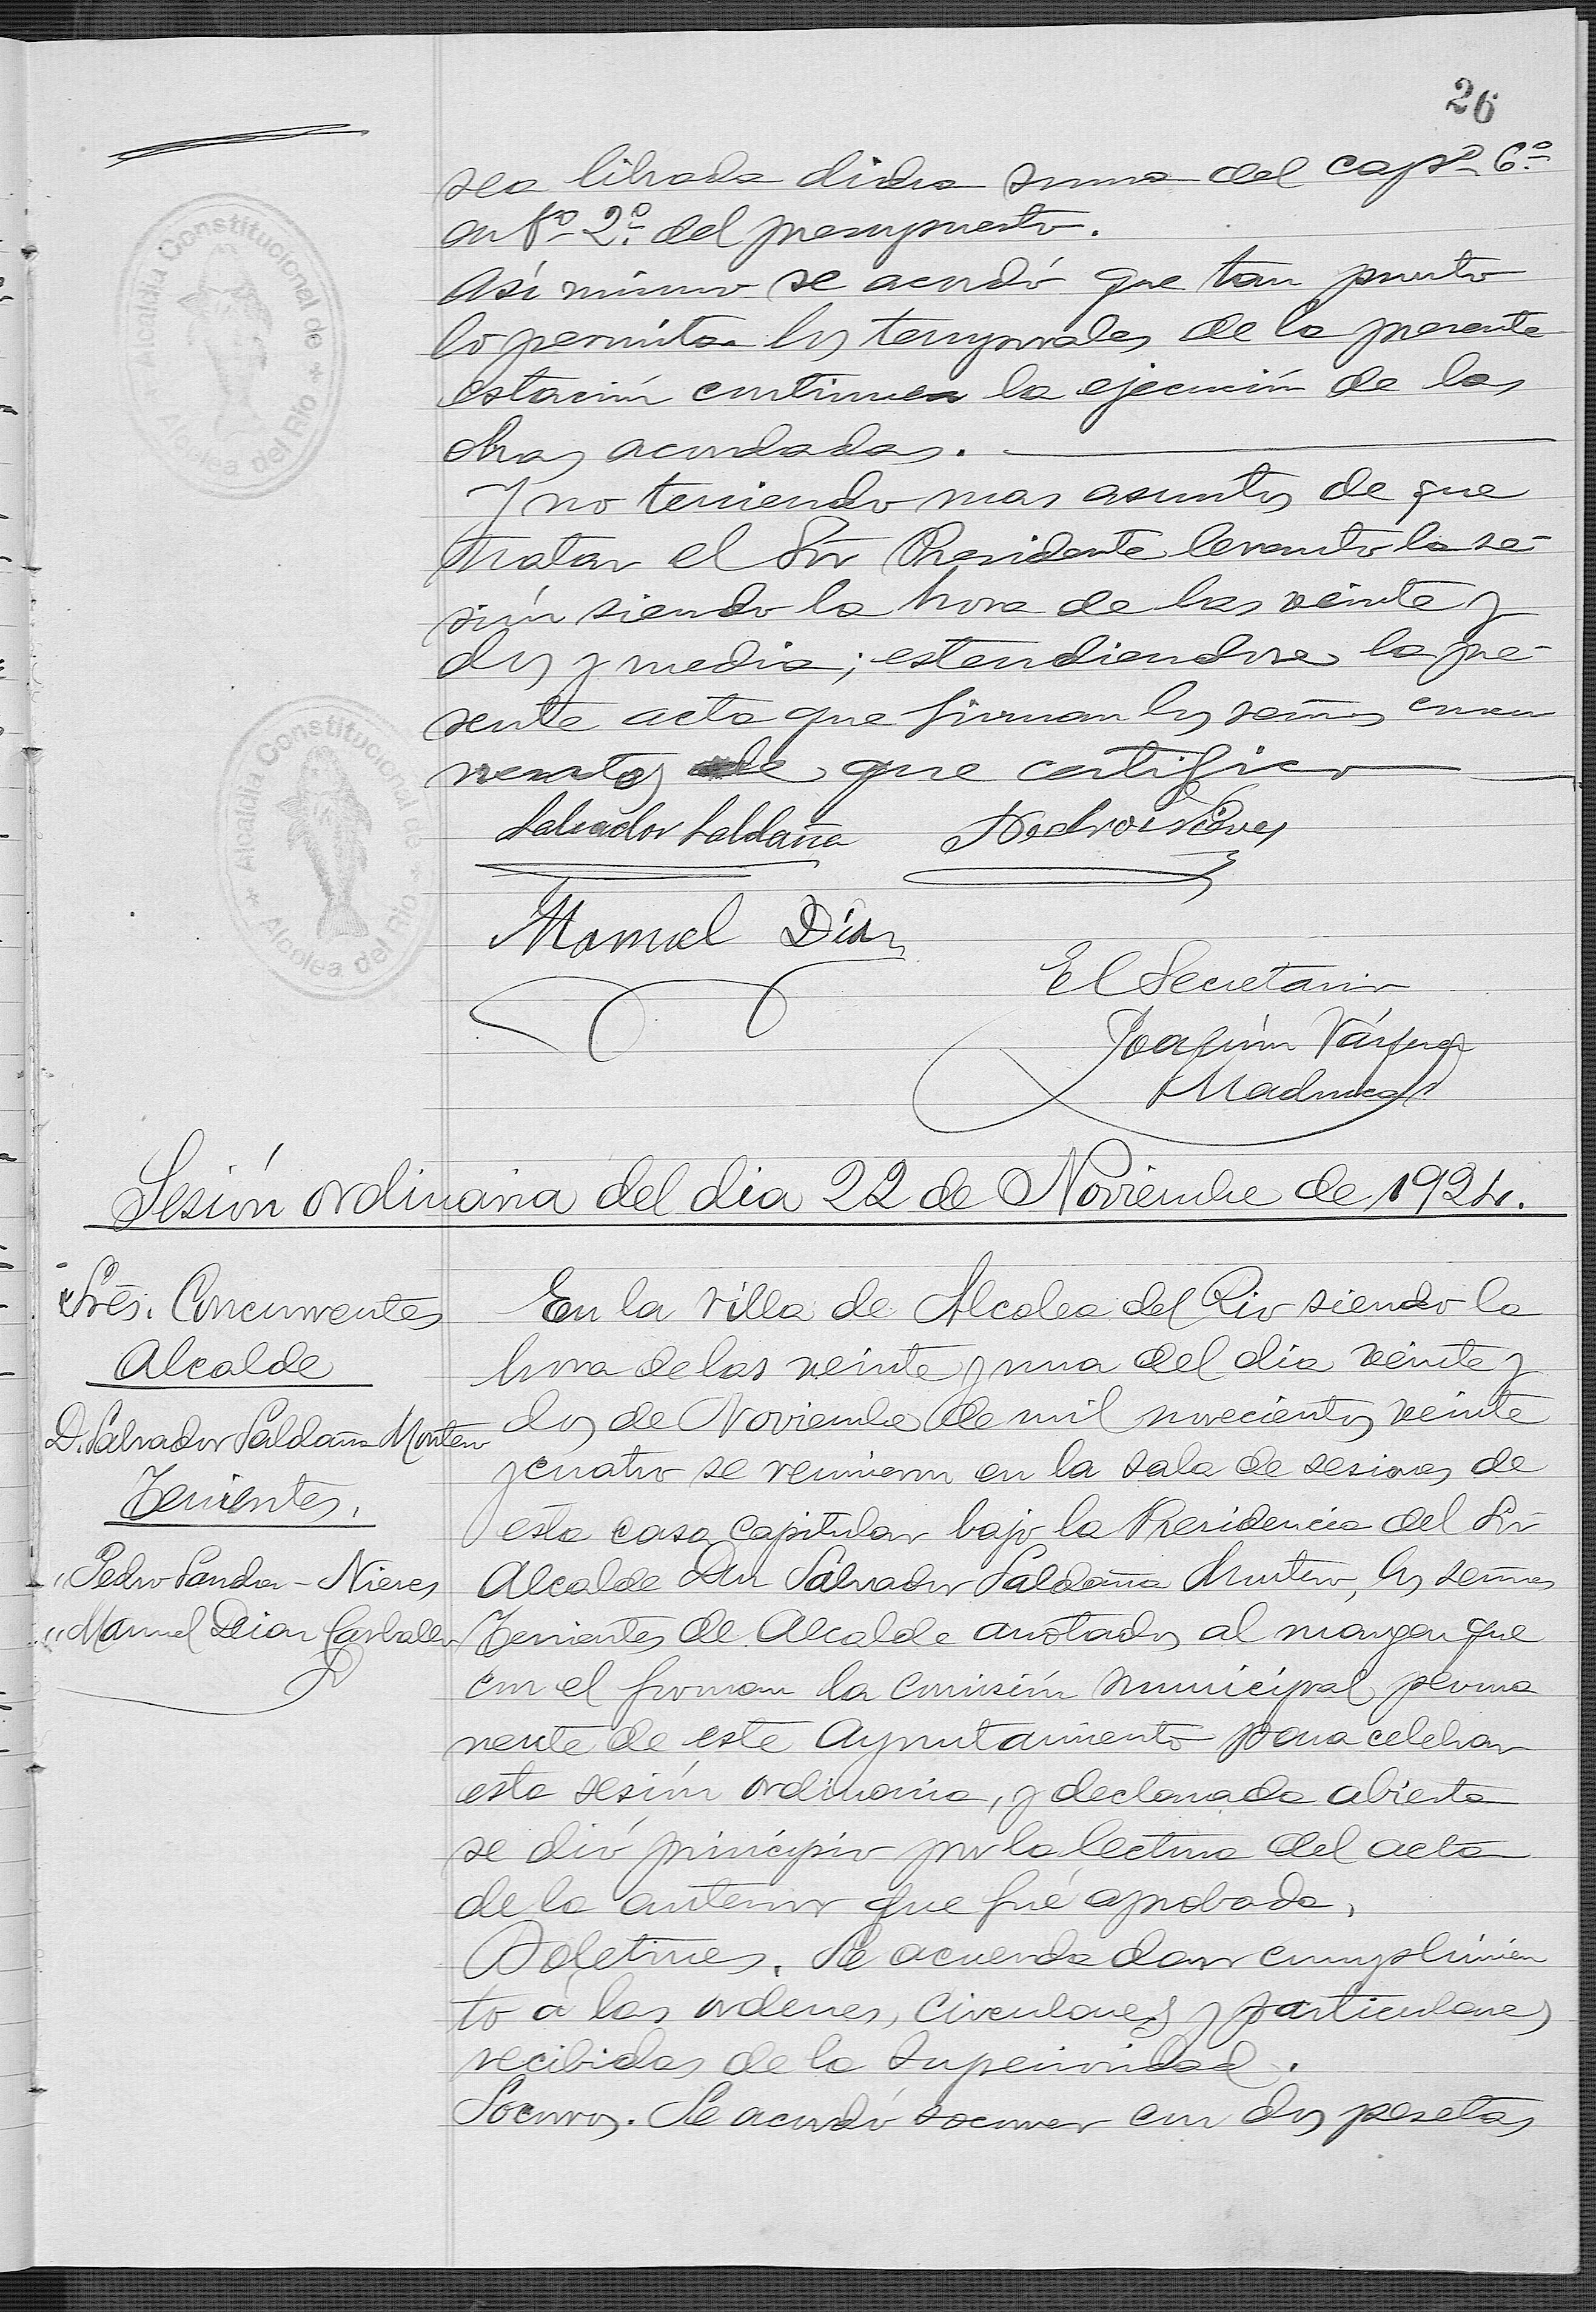 26
sea librada dicha suma del capº 6º
artº 2º del presupuesto.
Asi mismo se acordó que tan pronto
lo permitan los temporales de la presente
estación continuen la ejecución de las
obras acordadas.
Y no teniendo mas asuntos de que
tratar el Sr Presidente levanto la se-
sión siendo la hora de las veinte y
dos y media; estendiendose la pre-
sente acta que firman los señores concu
rrentes de que certifico
Salvador Saldaña Pedro S Nieves
Manuel Díaz
El Secretario
Joaquín Vázquez
Alcaldia Constitucional de
Alcolea del Rio
Alcaldia Constitucional de
Alcolea del Rio
Sesión ordinaria del dia 22 de Noviembre de 1924.
Srēs. Concurrentes
Alcalde
D. Salvador Saldaña Montero
Tenientes.
" Pedro Sandra - Nieves
" Manuel Diaz Carballo
En la villa de Alcolea del Rio siendo la
hora de las veinte y una del dia veinte y
dos de Noviembre de mil novecientos veinte
y cuatro se reunieron en la sala de sesiones de
esta casa capitular bajo la Presidencia del Sr
Alcalde Don Salvador Saldaña Montero, los señores
Tenientes de Alcalde anotados al margen que
con el forman la comisión municipal perma
nente de este Ayuntamiento para celebrar
esta sesión ordinaria, y declarada abierta
se dió principio por la lectura del acta
de la anterior que fué aprobada.
Boletines. Se acuerda dar cumplimien
to á las ordenes, circulares y particulares
recibidas de la Superioridad.
Socorros. Se acordó socorrer con dos pesetas